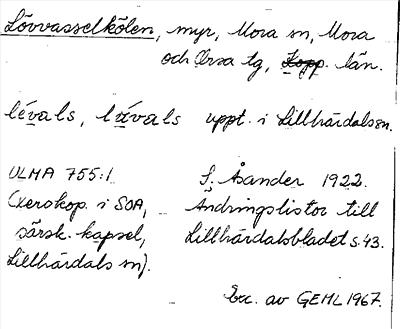 Lövvasselkölen, myr, Mora sn, Mora
och Orsa tg, Kopp. län.
lévals, lívals uppt. i Lillhärdal sn.
ULMA 755:1. S. Åsander 1922.
(xerokop. i SOA, Ändringslistor till
särsk. kapsel, Lillhärdalsbladet s. 43.
Lillhärdals sn).
Exc. av GEHL 1967.